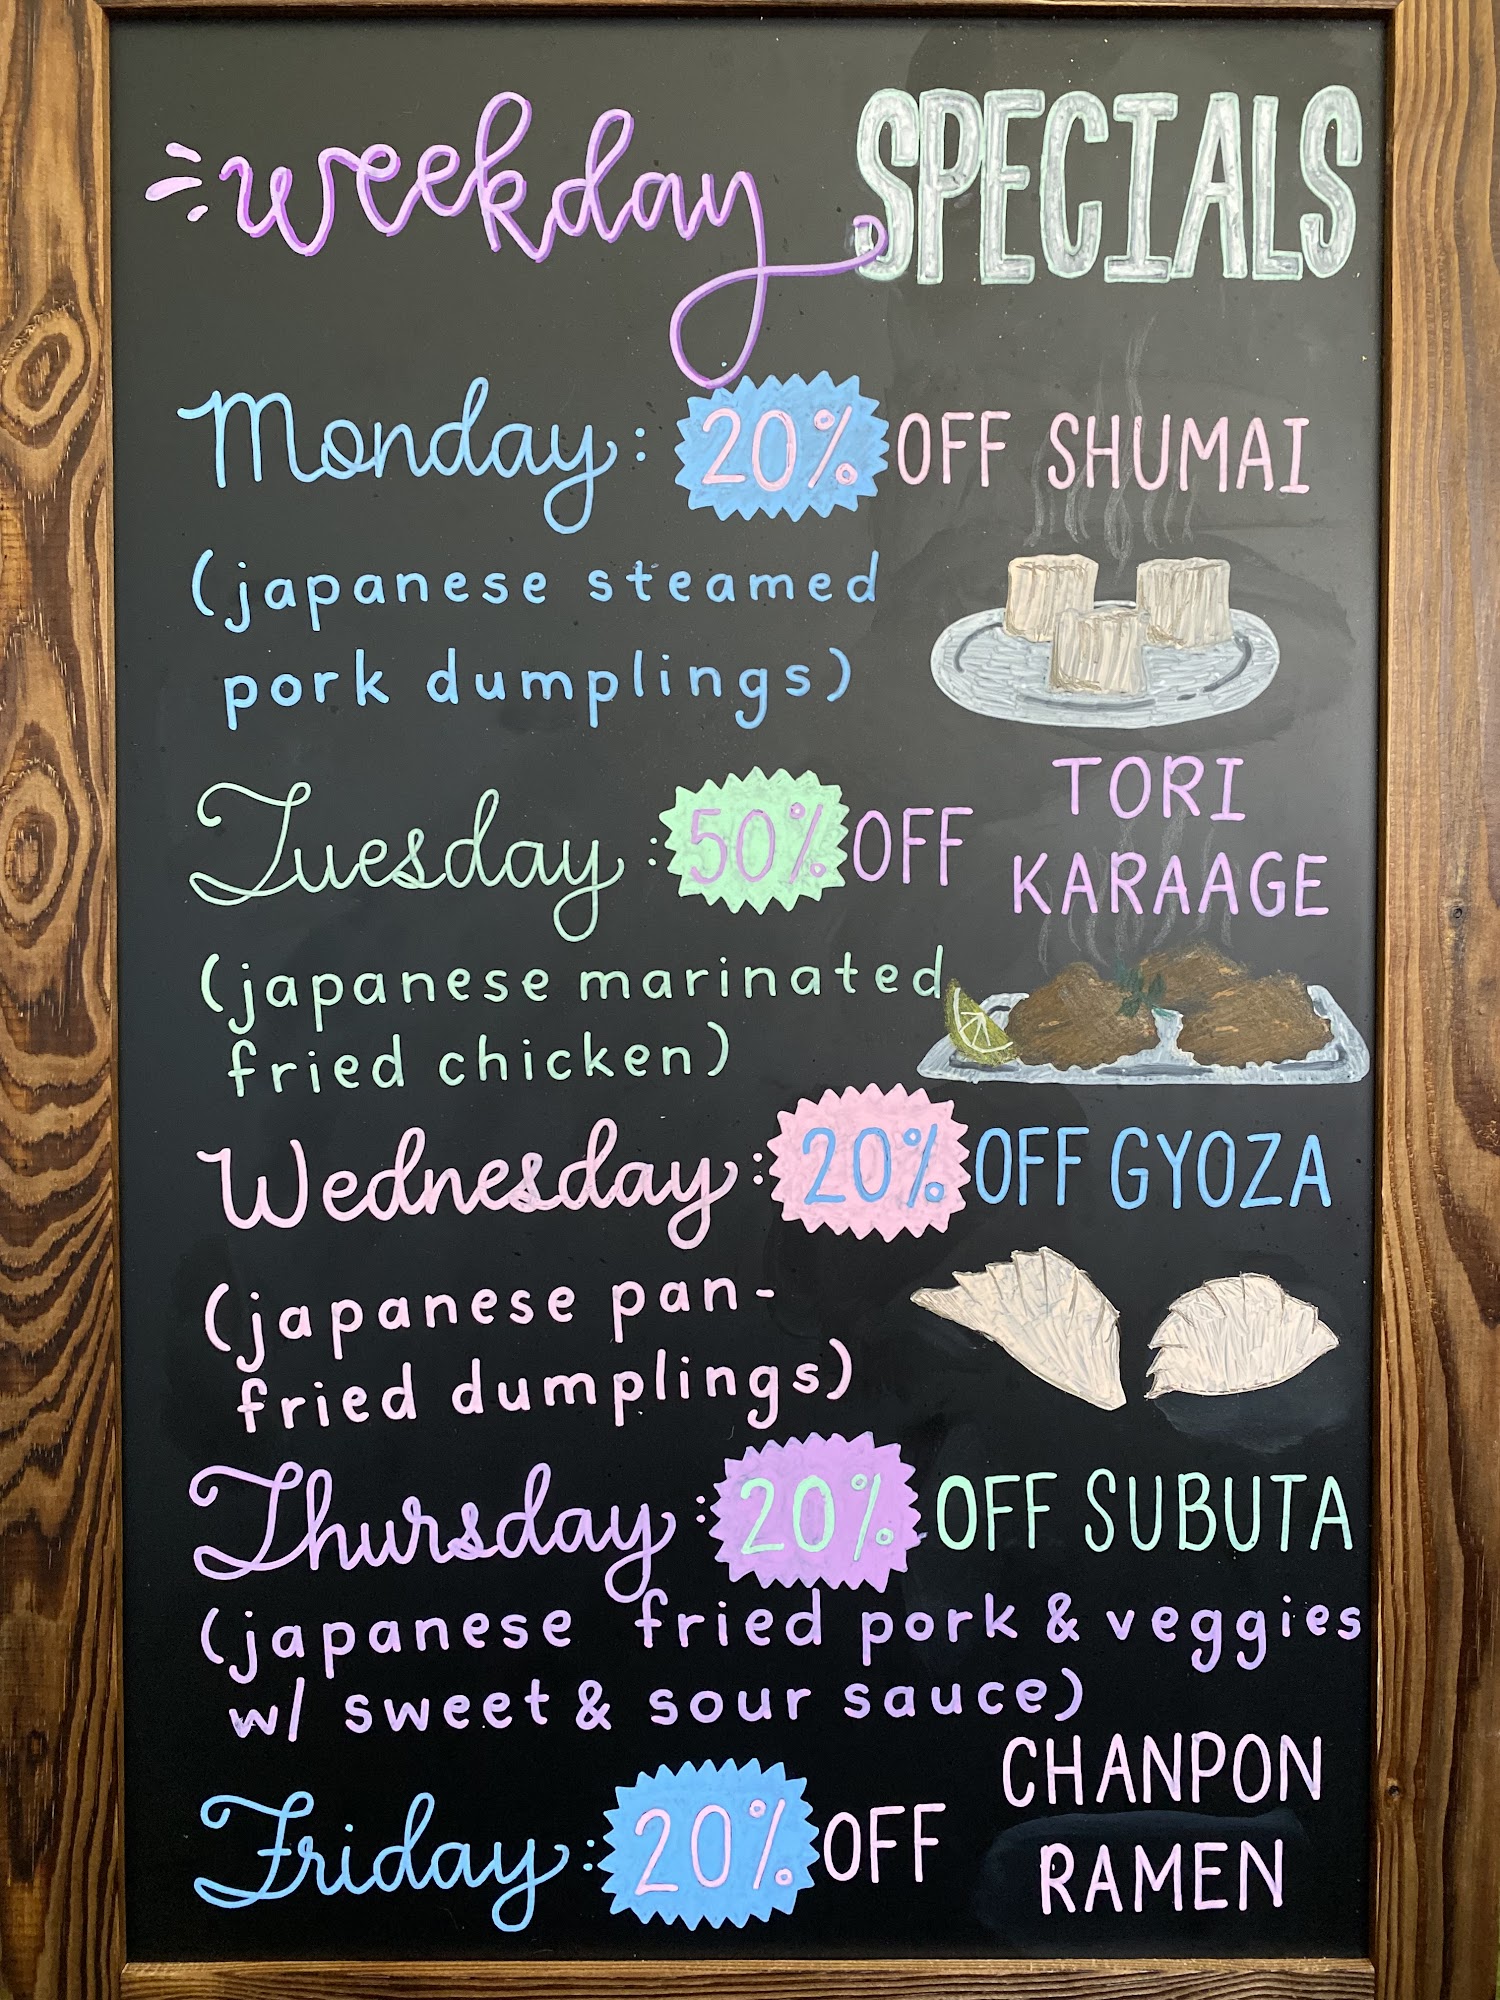 weekday SPECIALS
Monday: 20% OFF SHUMAI
(japanese steamed
pork dumplings)
Tuesday: 50% OFF TORI
KARAAGE
(japanese marinated
fried chicken)
Wednesday: 20% OFF GYOZA
(japanese pan-
fried dumplings)
Thursday: 20% OFF SUBUTA
(japanese fried pork & veggies
w/ sweet & sour sauce)
Friday: 20% OFF CHANPON
RAMEN